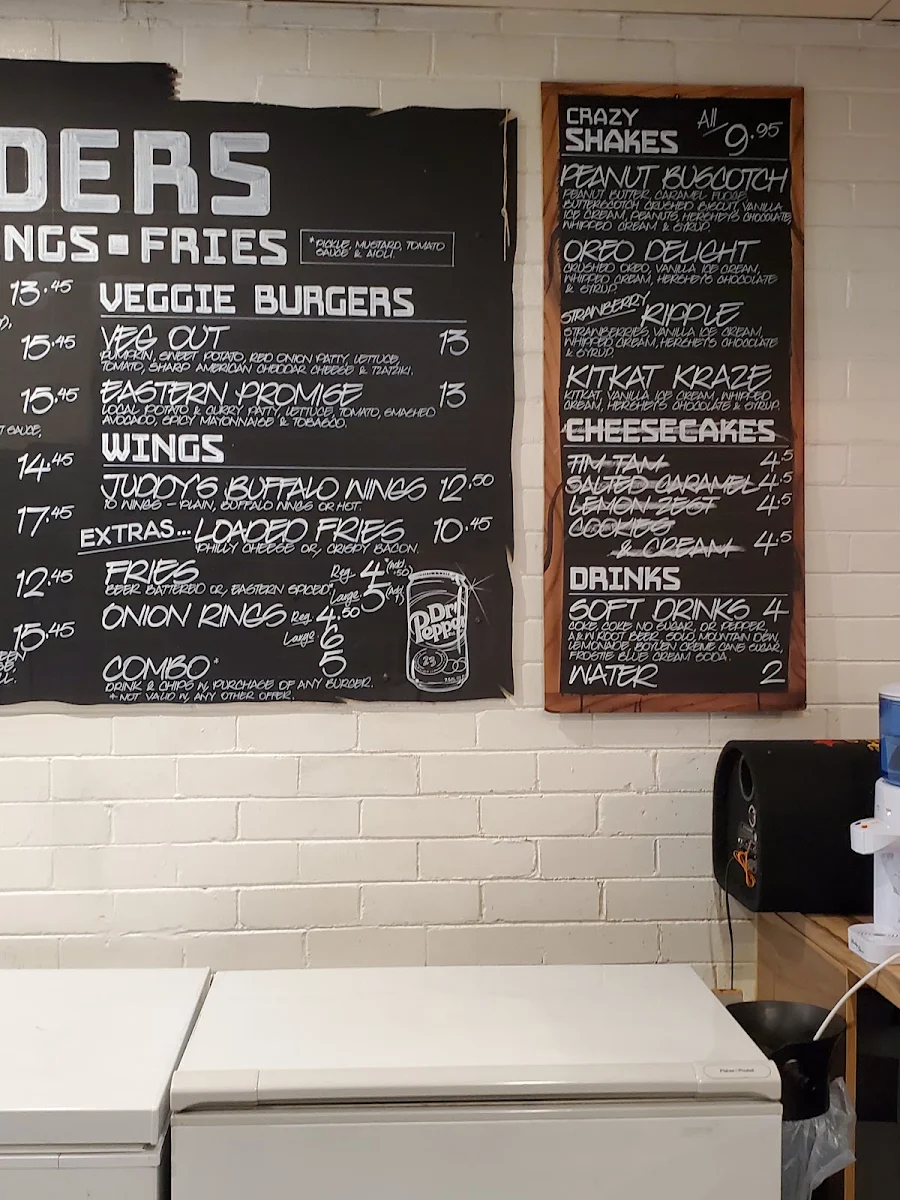 DERS
NGS - FRIES
*PICKLE, MUSTARD, TOMATO
SAUCE & AIOLI.
13.45
15.45
15.45
T SAUCE,
14.45
17.45
12.45
15.45
VEGGIE BURGERS
VEG OUT 13
PUMPKIN, SWEET POTATO, RED ONION PATTY, LETTUCE,
TOMATO, SHARP AMERICAN CHEDDAR CHEESE & TZATZIKI.
EASTERN PROMISE 13
LOCAL POTATO & CURRY PATTY, LETTUCE, TOMATO, SMASHED
AVOCADO, SPICY MAYONNAISE & TOBASCO.
WINGS
JUDDY'S BUFFALO WINGS 12.50
10 WINGS - PLAIN, BUFFALO WINGS OR HOT.
EXTRAS... LOADED FRIES 10.45
PHILLY CHEESE OR, CRISPY BACON.
FRIES Reg. 4 (Add .50)
BEER BATTERED OR, EASTERN SPICED* Large 5 (Add 1)
ONION RINGS Reg. 4.50
Large 6
COMBO* 5
DRINK & CHIPS W, PURCHASE OF ANY BURGER.
*NOT VALID W, ANY OTHER OFFER.
Dr
Pepper
23
CRAZY
SHAKES All 9.95
PEANUT BUGSCOTCH
PEANUT BUTTER, CARAMEL FUDGE,
BUTTERSCOTCH CRUSHED BISCUIT, VANILLA
ICE CREAM, PEANUTS, HERSHEYS CHOCOLATE,
WHIPPED CREAM & SYRUP.
OREO DELIGHT
CRUSHED OREO, VANILLA ICE CREAM,
WHIPPED CREAM, HERSHEYS CHOCOLATE
& SYRUP.
STRANBERRY RIPPLE
STRANBERRIES, VANILLA ICE CREAM,
WHIPPED CREAM, HERSHEYS CHOCOLATE
& SYRUP.
KITKAT KRAZE
KITKAT, VANILLA ICE CREAM, WHIPPED
CREAM, HERSHEYS CHOCOLATE & SYRUP.
CHEESECAKES
TIM TAM 4.5
SALTED CARAMEL 4.5
LEMON ZEST 4.5
COOKIES
& CREAM 4.5
DRINKS
SOFT DRINKS 4
COKE, COKE NO SUGAR, DR, PEPPER,
A&W ROOT BEER, SOLO, MOUNTAIN DEW,
LEMONADE, BOYLEN CREME CANE SUGAR,
FROSTIE BLUE CREAM SODA.
WATER 2
Fisher & Paykel